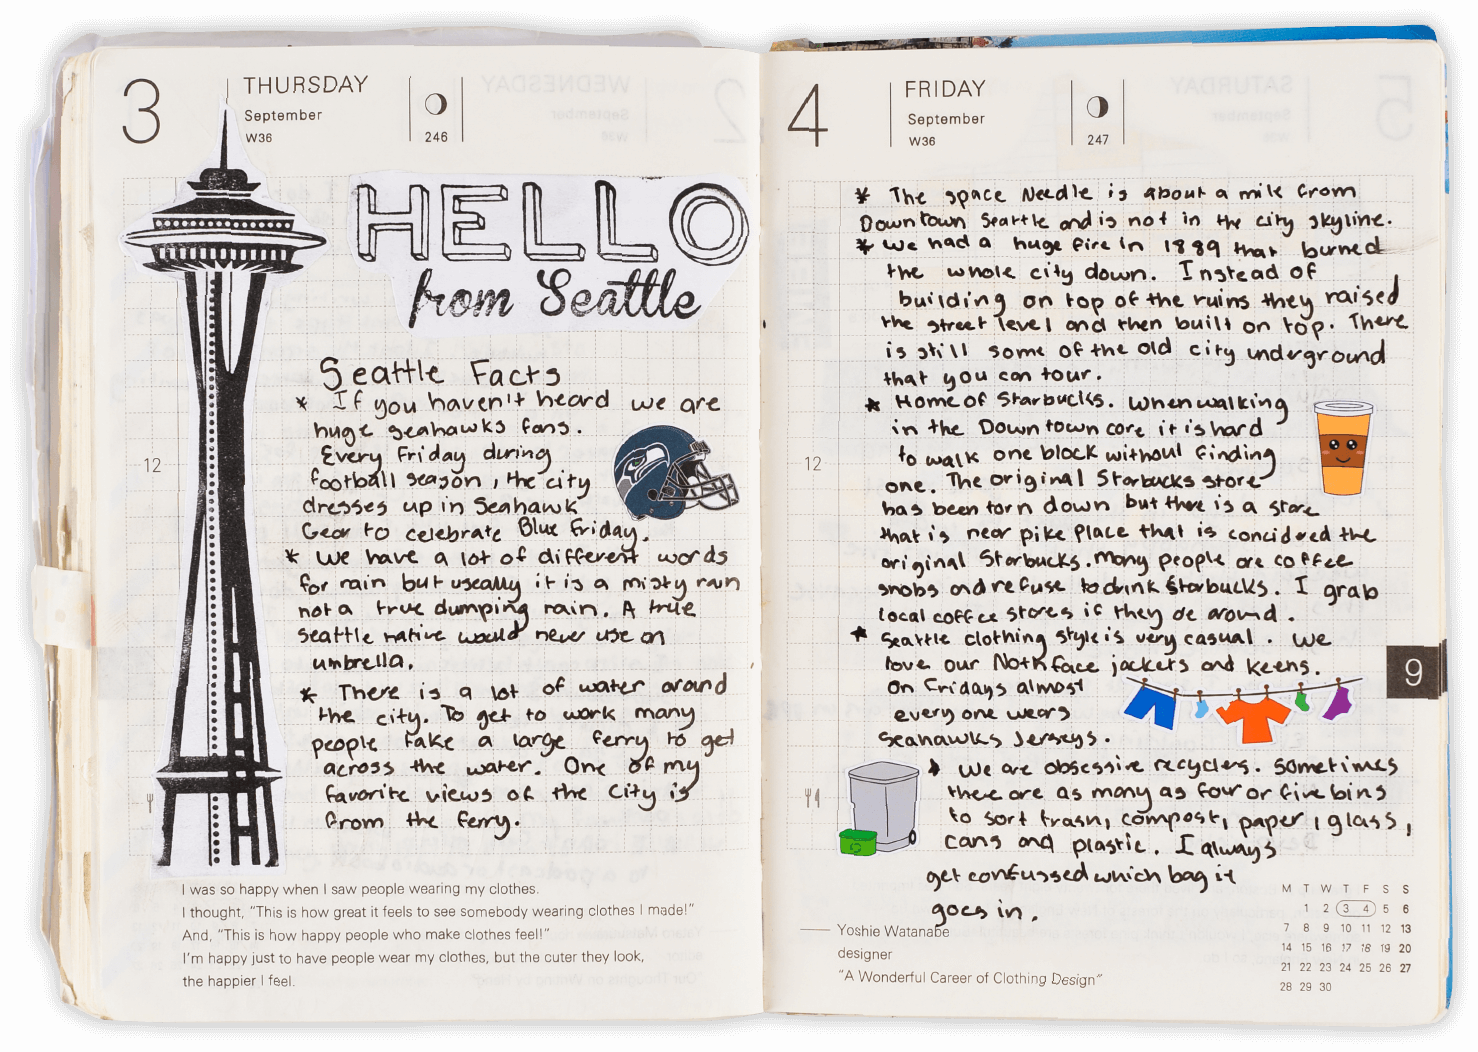 3
THURSDAY
September
W36
246
HELLO
from Seattle
Seattle Facts
* If you haven't heard we are
huge seahawks fans.
Every Friday during
football season, the city
dresses up in Seahawk
Gear to celebrate Blue Friday.
* We have a lot of different words
for rain but useally it is a misty rain
not a true dumping rain. A true
seattle native would never use an
umbrella.
* There is a lot of water around
the city. To get to work many
people take a large ferry to get
across the water. One of my
favorite views of the City is
from the ferry.
12
I was so happy when I saw people wearing my clothes.
I thought, "This is how great it feels to see somebody wearing clothes I made!"
And, "This is how happy people who make clothes feel!"
I'm happy just to have people wear my clothes, but the cuter they look,
the happier I feel.
4
FRIDAY
September
W36
247
* The space Needle is about a mile from
Downtown Seattle and is not in the city skyline.
* We had a huge fire in 1889 that burned
the whole city down. Instead of
building on top of the ruins they raised
the street level and then built on top. There
is still some of the old city underground
that you can tour.
* Home of Starbucks. When walking
in the Downtown core it is hard
to walk one block without finding
one. The original Starbucks store
has been torn down but there is a store
that is near pike Place that is concidered the
original Starbucks. Many people are coffee
snobs and refuse to drink Starbucks. I grab
local coffee stores if they are around.
* Seattle clothing style is very casual. We
love our Noth face jackets and keens.
On Fridays almost
every one wears
Seahawks Jerseys.
* We are obsessive recyclers. Sometimes
there are as many as four or five bins
to sort trash, compost, paper, glass,
cans and plastic. I always
get confussed which bag it
goes in.
12
9
Yoshie Watanabe
designer
"A Wonderful Career of Clothing Design"
M T W T F S S
1 2 3 4 5 6
7 8 9 10 11 12 13
14 15 16 17 18 19 20
21 22 23 24 25 26 27
28 29 30